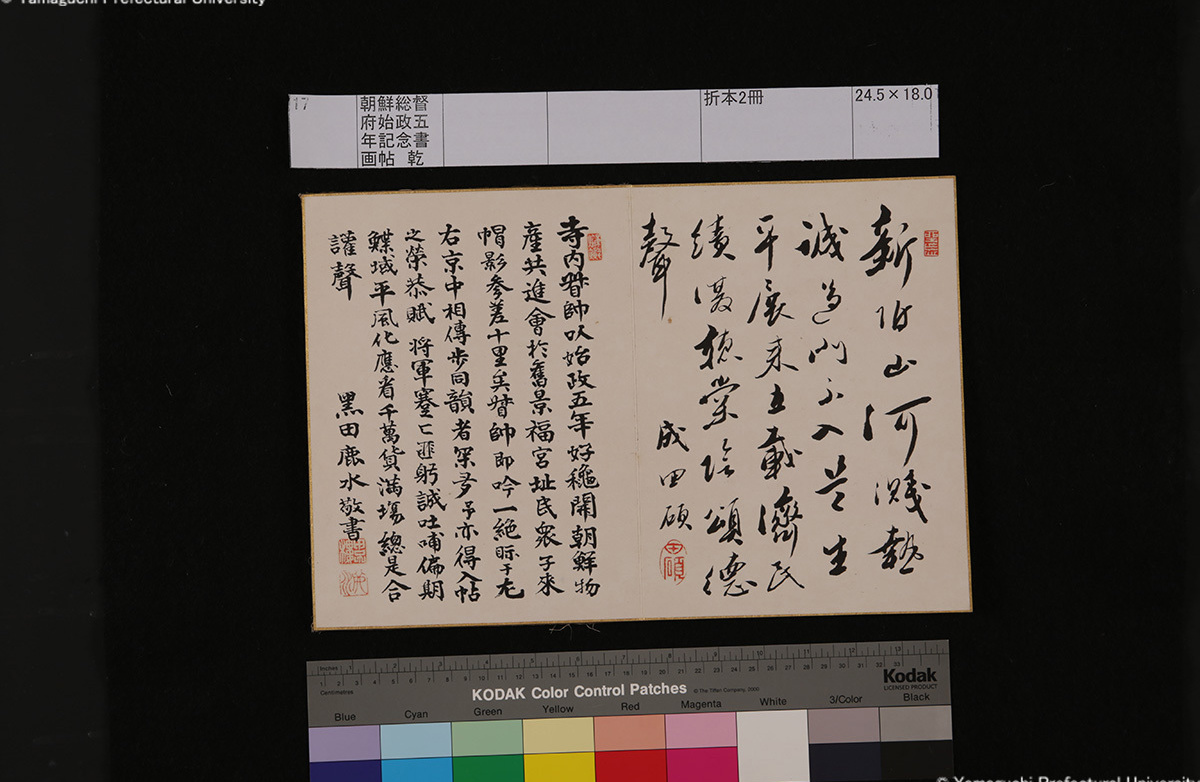 © Yamaguchi Prefectural University
17
朝鮮総督
府始政五
年記念書
画帖 乾
折本2冊
24.5×18.0
新附山河濺熱
誠過門不入是生
平展来五載済民
績漫聴棠陰頌徳
聲
成田碩
寺内督帥以始政五年好機開朝鮮物
産共進會於舊景福宮址民衆子來
帽影參差十里矣督帥即吟一絶眎于尤
右京中相傳歩同韻者眾多予亦得入帖
之榮恭賦 将軍蹇〻匪躬誠吐哺偏期
鰈域平風化應看千萬貨満塲總是合
讙聲
黒田鹿水敬書
KODAK Color Control Patches
© The Tiffen Company, 2000
Kodak
LICENSED PRODUCT
Inches
Centimetres
Blue Cyan Green Yellow Red Magenta White 3/Color Black
© Yamaguchi Prefectural University